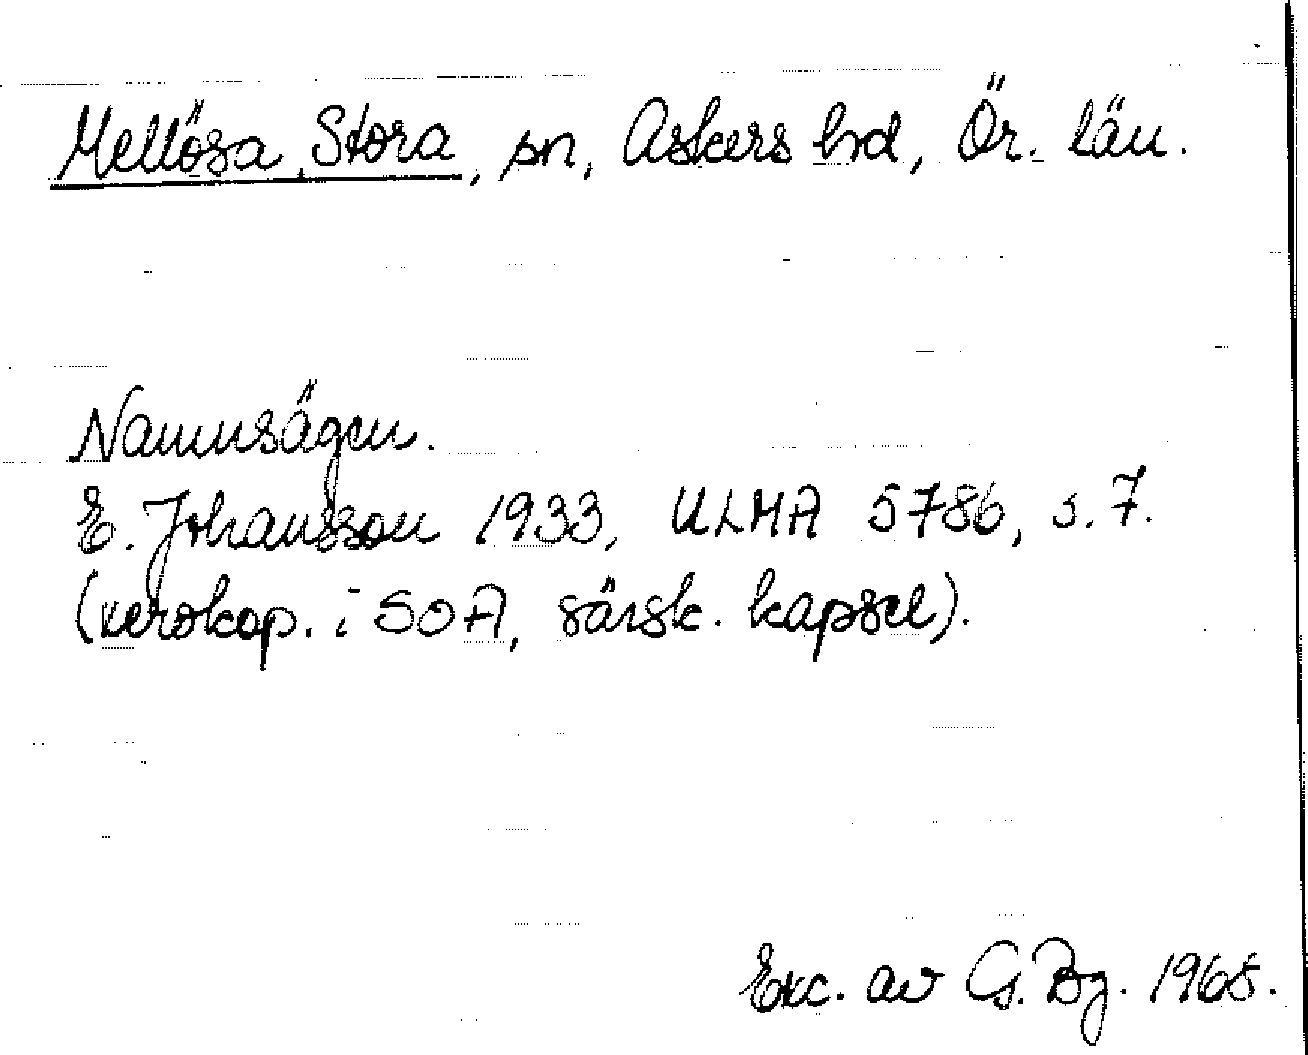 Mellösa, Stora, sn, Askers hd, Ör. län.
Namnsägen.
E. Johansson 1933, ULMA 5786, s. 7.
(xerokop. i SOA, särsk. kapsel).
Exc. av G. Bg. 1968.